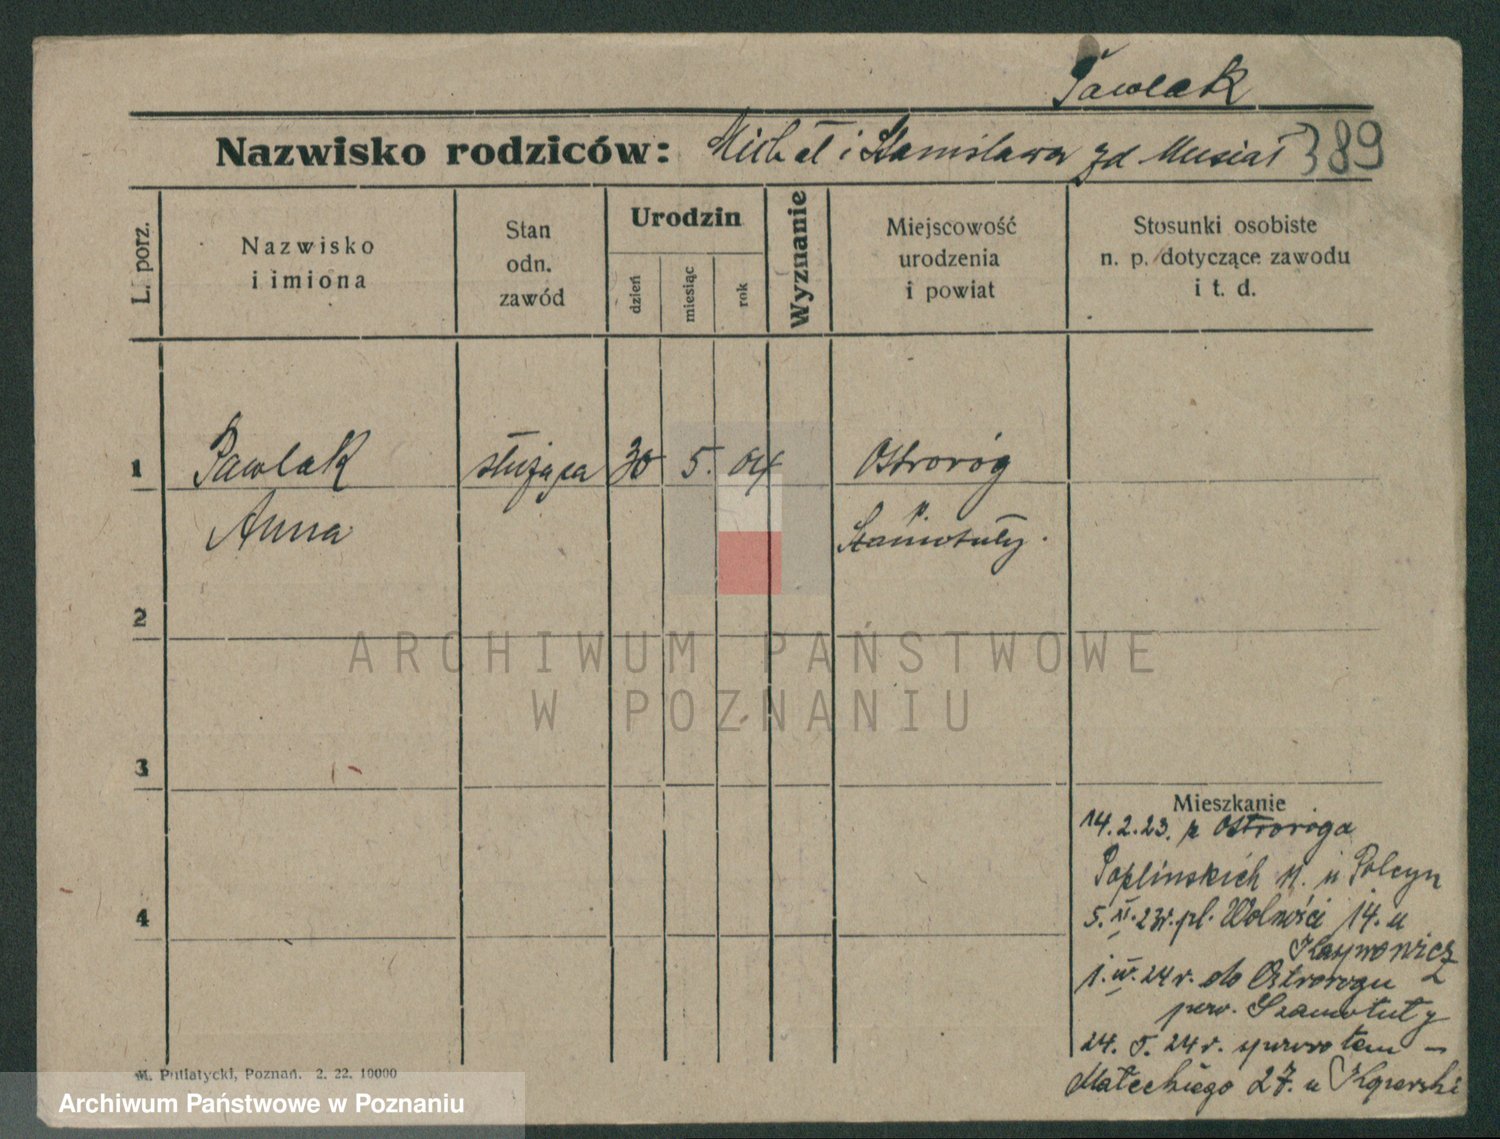 Pawlak
Nazwisko rodziców: Michał i Stanisława zd Musiał 389
L. porz.
Nazwisko
i imiona
Stan
odn.
zawód
Urodzin
dzień
miesiąc
rok
Wyznanie
Miejscowość
urodzenia
i powiat
Stosunki osobiste
n. p. dotyczące zawodu
i t. d.
1 Pawlak służąca 30 5. 04 Ostroróg
Anna p.
Szamotuły.
2
3
4
Mieszkanie
14.2.23. z Ostroroga
Poplinskich 11. u Polcyn
5. XI. 23r. pl. Wolności 14. u
1. IV. 24 r. do Ostrorogu
pow. Szamotuły
24. 5. 24 r. spowrotem –
Małeckiego 27. u
M. Putiatycki, Poznań. 2. 22. 10000
ARCHIWUM PAŃSTWOWE
W POZNANIU
Archiwum Państwowe w Poznaniu